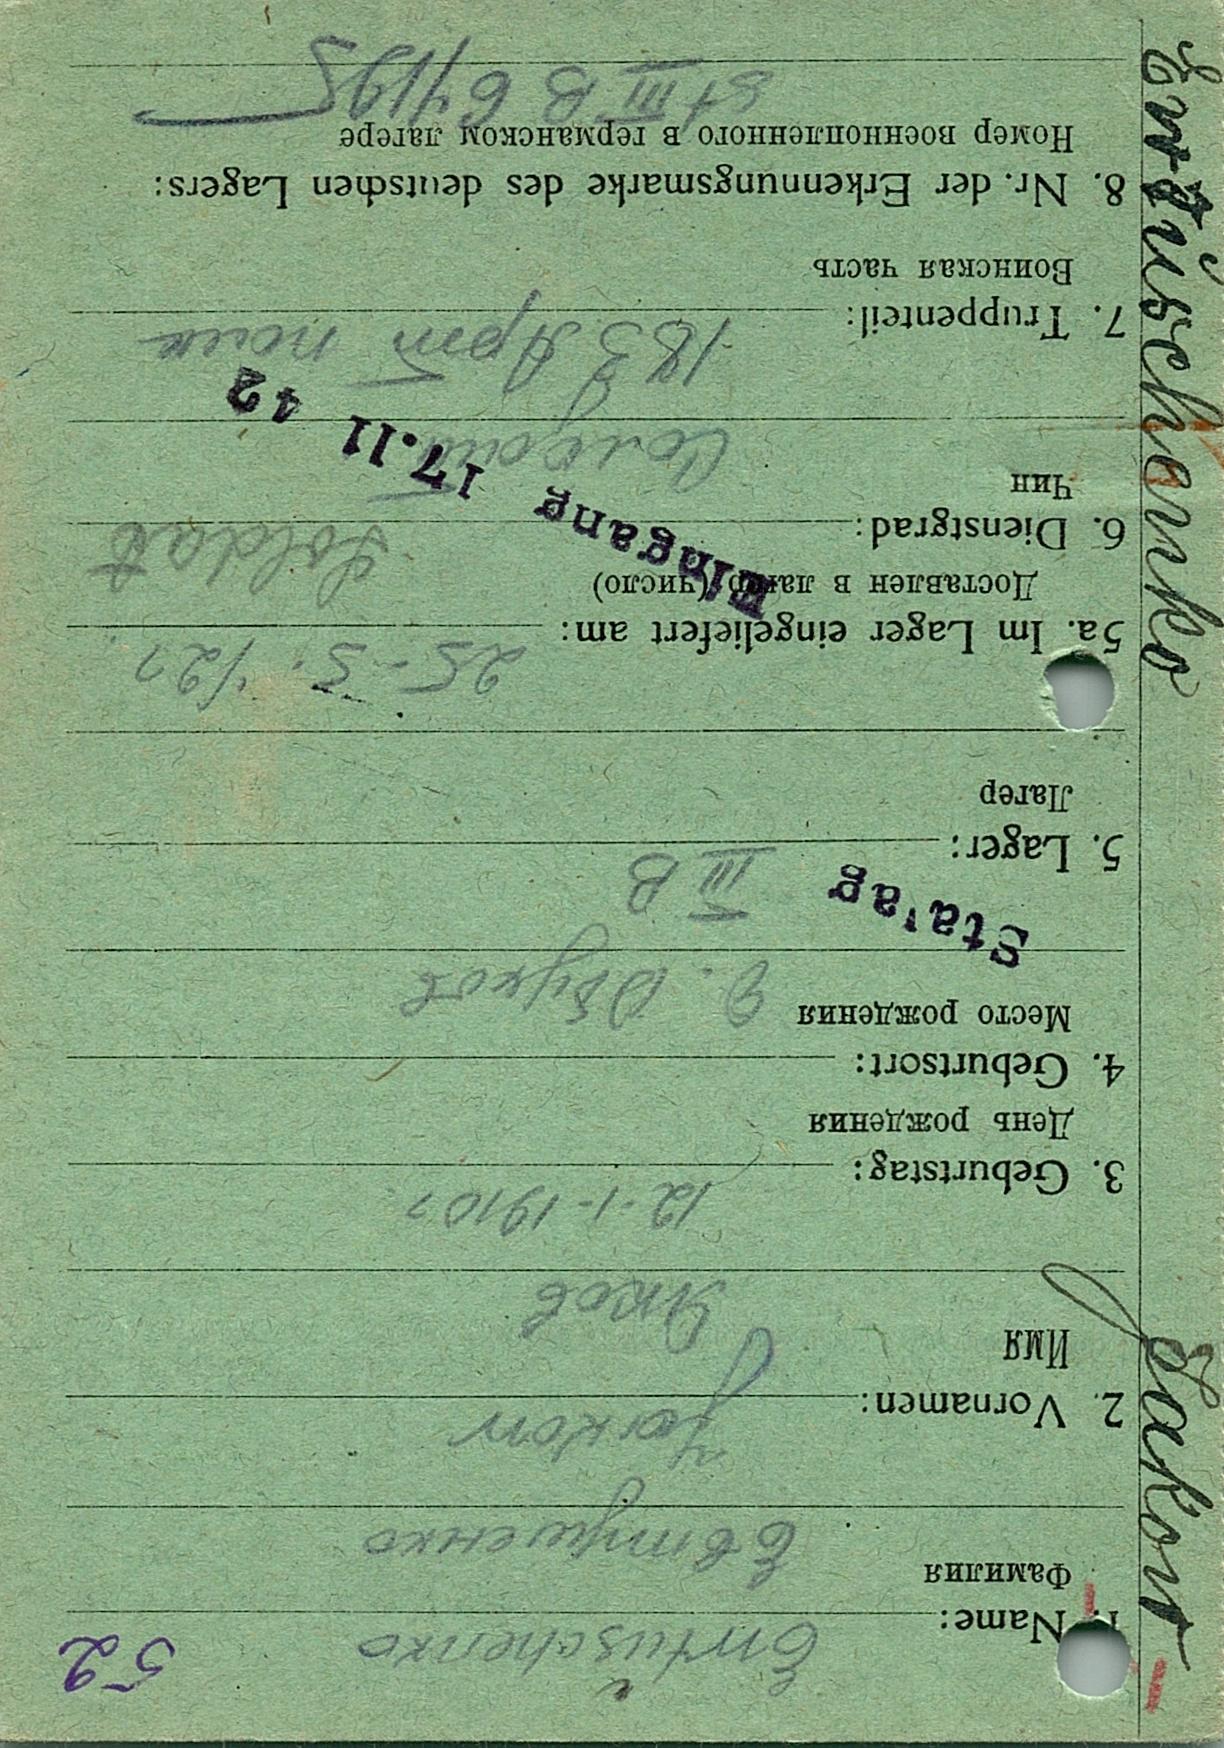 52
1. Name: Ewtuschenko
Фамилия Евтушенко
2. Vornamen: Jakow
Имя Яков
3. Geburtstag: 12-1-1910 г
День рождения
4. Geburtsort:
Место рождения
Stalag
5. Lager: III B
Лагерь
25-5.
5a. Im Lager eingeliefert am:
Доставлен в лагерь (число)
Eingang 17.11 42
6. Dienstgrad: Soldat
Чин Солдат
7. Truppenteil: 183 Арт полк
Воинская часть
8. Nr. der Erkennungsmarke des deutschen Lagers:
Номер военнопленного в германском лагере
St III B 64195
Jakow Ewtuschenko